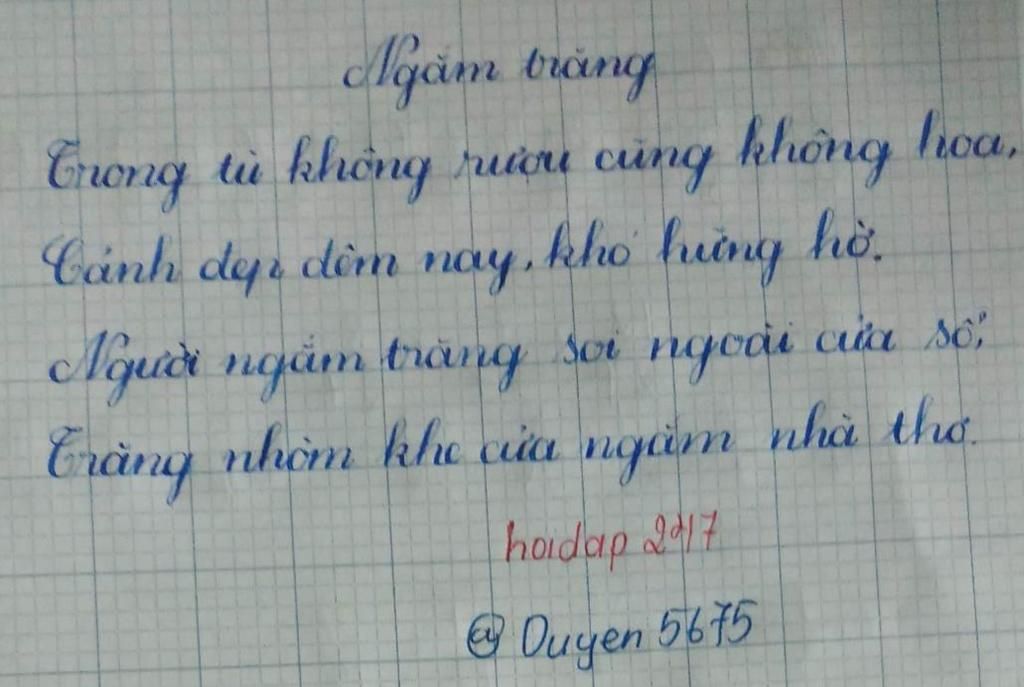 Ngắm trăng
Trong tù không rượu cũng không hoa,
Cảnh đẹp đêm nay, khó hững hờ.
Người ngắm trăng soi ngoài cửa sổ,
Trăng nhòm khe cửa ngắm nhà thơ.
hoidap 247
@ Duyen 5675